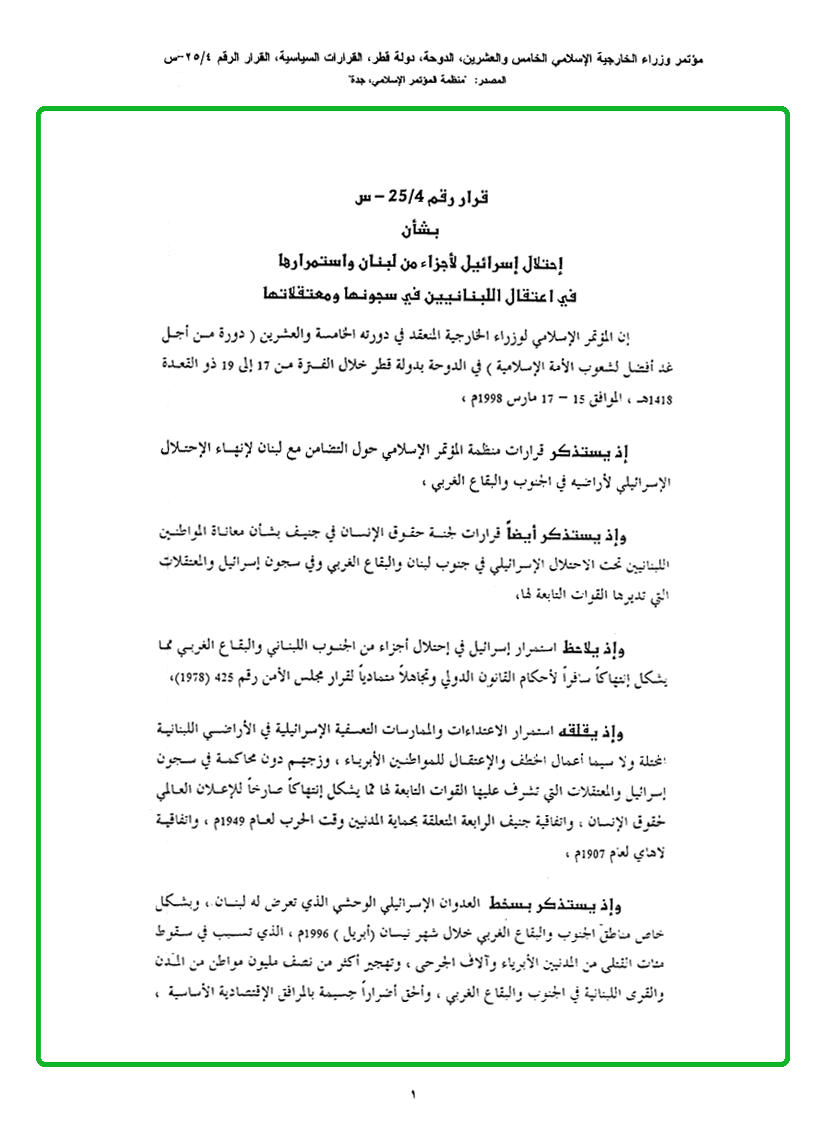 مؤتمر وزراء الخارجية الإسلامي الخامس والعشرين، الدوحة، دولة قطر، القرارات السياسية، القرار الرقم ٢٥/٤-س
المصدر: "منظمة المؤتمر الإسلامي، جدة"
قرار رقم 25/4 – س
بشأن
إحتلال إسرائيل لأجزاء من لبنان واستمرارها
في اعتقال اللبنانيين في سجونها ومعتقلاتها
إن المؤتمر الإسلامي لوزراء الخارجية المنعقد في دورته الخامسة والعشرين ( دورة من أجل
غد أفضل لشعوب الأمة الإسلامية ) في الدوحة بدولة قطر خلال الفترة من 17 إلى 19 ذو القعدة
1418هـ ، الموافق 15 – 17 مارس 1998م ،
إذ يستذكر قرارات منظمة المؤتمر الإسلامي حول التضامن مع لبنان لإنهاء الإحتلال
الإسرائيلي لأراضيه في الجنوب والبقاع الغربي ،
وإذ يستذكر أيضاً قرارات لجنة حقوق الإنسان في جنيف بشأن معاناة المواطنين
اللبنانيين تحت الاحتلال الإسرائيلي في جنوب لبنان والبقاع الغربي وفي سجون إسرائيل والمعتقلات
التي تديرها القوات التابعة لها،
وإذ يلاحظ استمرار إسرائيل في إحتلال أجزاء من الجنوب اللبناني والبقاع الغربي مما
يشكل إنتهاكاً سافراً لأحكام القانون الدولي وتجاهلاً متمادياً لقرار مجلس الأمن رقم 425 (1978)،
وإذ يقلقه استمرار الاعتداءات والممارسات التعسفية الإسرائيلية في الأراضي اللبنانية
المحتلة ولا سيما أعمال الخطف والإعتقال للمواطنين الأبرياء ، وزجهم دون محاكمة في سجون
إسرائيل والمعتقلات التي تشرف عليها القوات التابعة لها مما يشكل إنتهاكاً صارخاً للإعلان العالمي
لحقوق الإنسان ، واتفاقية جنيف الرابعة المتعلقة بحماية المدنيين وقت الحرب لعام 1949م ، واتفاقية
لاهاي لعام 1907م ،
وإذ يستذكر بسخط العدوان الإسرائيلي الوحشي الذي تعرض له لبنان ، وبشكل
خاص مناطق الجنوب والبقاع الغربي خلال شهر نيسان (أبريل ) 1996م ، الذي تسبب في سقوط
مئات القتلى من المدنيين الأبرياء وآلاف الجرحى ، وتهجير أكثر من نصف مليون مواطن من المدن
والقرى اللبنانية في الجنوب والبقاع الغربي ، وألحق أضراراً جسيمة بالمرافق الإقتصادية الأساسية ،
١